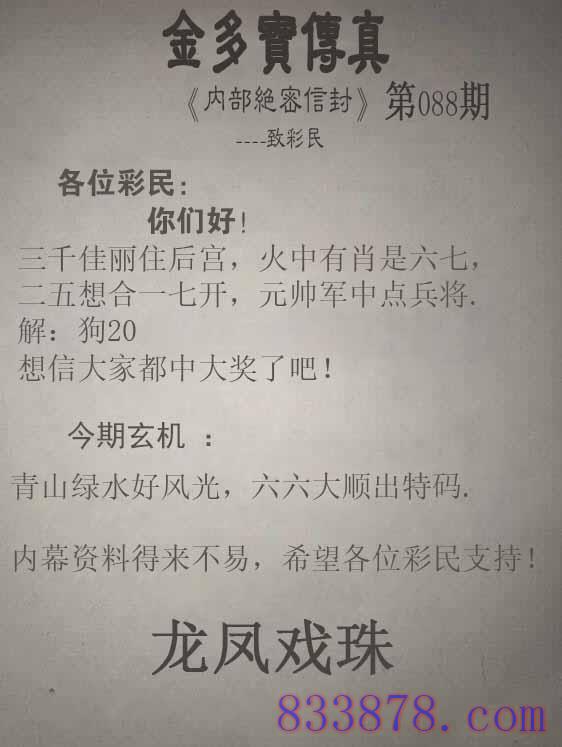 金多寶傳真
《内部絕密信封》第088期
----致彩民
各位彩民:
你们好!
三千佳丽住后宫，火中有肖是六七，
二五想合一七开，元帅军中点兵将.
解：狗20
想信大家都中大奖了吧!
今期玄机 ：
青山绿水好风光，六六大顺出特码.
内幕资料得来不易，希望各位彩民支持!
龙凤戏珠
833878.com